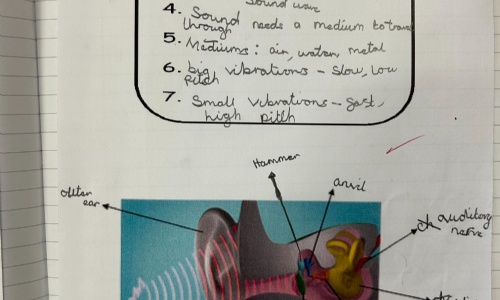 Sound wave
4. Sound needs a medium to travel
through
5. Mediums: air, water, metal
6. big vibrations - slow, low
pitch
7. Small vibrations - fast,
high pitch
Hammer
anvil
outer
ear
auditory
nerve